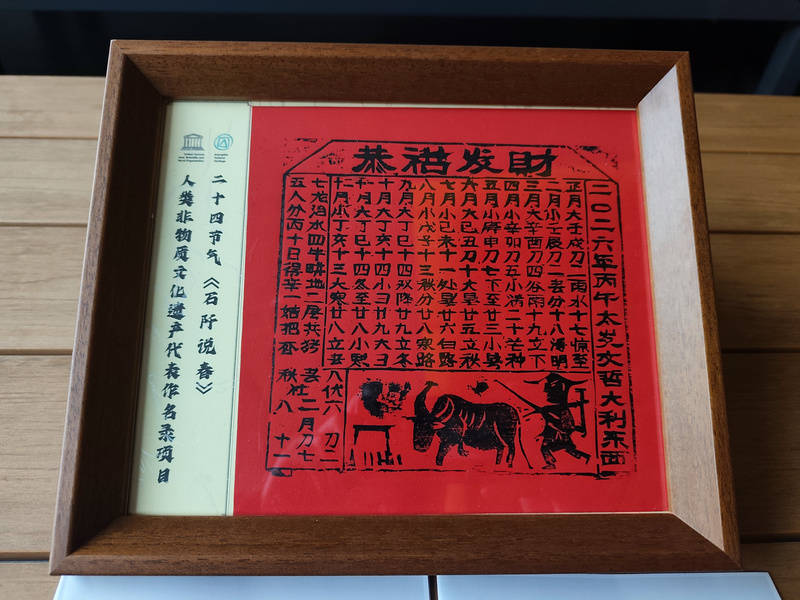 恭禧发财
二〇二六年丙午太岁文哲大利东西
正月大壬戌刀一雨水十七惊至
二月小壬辰刀一春分十八清明
三月大辛酉刀四谷雨十九立下
四月小辛卯刀五小满二十芒种
五月小庚申刀七下至廿三小暑
六月大己丑刀十大暑廿五立秋
七月小己未十一处暑廿六白露
八月小戊子十三秋分廿八寒路
九月大丁巳十四双降廿九立冬
十月大丁亥十四小彐廿九大彐
十一月大丁巳十四冬至廿八小寒
十二月小丁亥十三大寒廿八立春
七龙治水四牛耕地二屠共猪
五人分丙十日得辛一姑把蚕
春社二月刀七
秋社八
十一
八伏六
刀二
United Nations
Intangible Cultural Heritage
二十四节气《石阡说春》
人类非物质文化遗产代表作名录项目